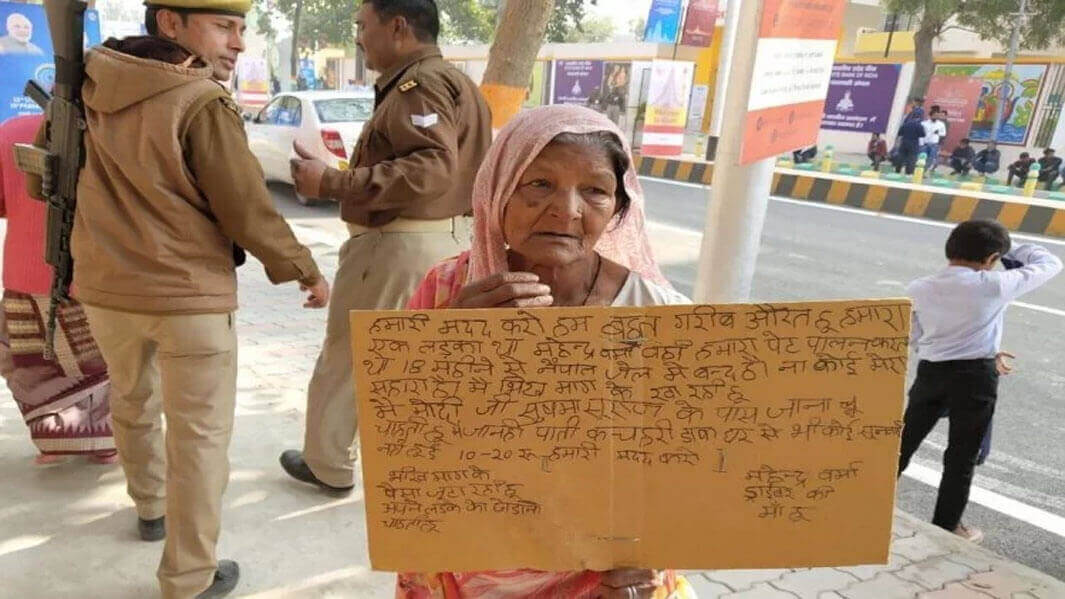 हमारी मदद करो हम बहुत गरीब औरत हू हमारा
एक लड़का था महेन्द्र वर्मा वही हमारा पेट पालन करता
था 18 महीने से नेपाल जेल मे बन्द है। ना कोई मेरा
सहारा है। मै भिख माग के खा रही हू
मै मोदी जी सुषमा के पास जाना
चाहती हू मै जा नही पाती कचहरी डाक घर से भी कोई
10-20 रू हमारी मदद करो
भीख माग के
पैसा जुटा रही हू
अपने लड़के को
चाहती हू
महेन्द्र वर्मा
ड्राईवर की
माँ हू
BANK OF INDIA